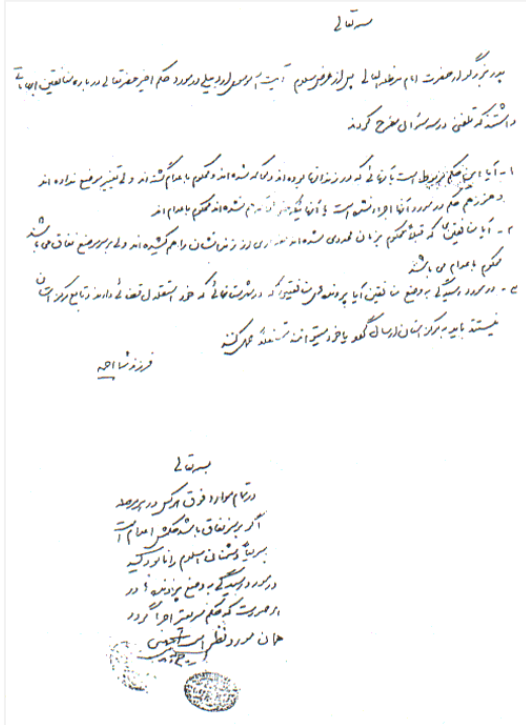 بسمه تعالی
پدر بزرگوار حضرت امام مدظله العالی پس از عرض سلام آیت الله موسوی اردبیلی در مورد حکم اخیر حضرتعالی درباره منافقین ابهاماتی
داشتند که تلفنی در سه سؤال مطرح کردند
۱- آیا این حکم مربوط است به آنهائی که در زندانها بوده‌اند و محاکمه شده‌اند و محکوم باعدام گشته‌اند ولی تغییر موضع نداده‌اند
و هنوز هم حکم در مورد آنها اجرا نشده است یا آنهائیکه حتی محاکمه هم نشده‌اند محکوم باعدامند
۲- آیا منافقینی که قبلاً محکوم بزندان محدودی شده‌اند و مقداری از زندانشان را هم کشیده‌اند ولی بر سر موضع نفاق می‌باشند
محکوم باعدام می‌باشند
۳- در مورد رسیدگی به وضع منافقین آیا پرونده‌های منافقینی که در شهرستانهائی که خود استقلال قضائی دارند و تابع مرکز استان
نیستند باید به مرکز استان ارسال گردد یا خود میتوانند مستقلاً عمل کنند
فرزند شما احمد
بسمه تعالی
در تمام موارد فوق هر کس در هر مرحله
اگر بر سر نفاق باشد حکمش اعدام است
سریعاً دشمنان اسلام را نابود کنید
در مورد رسیدگی به وضع پرونده‌ها در
هر صورت که حکم سریعتر اجرا گردد
همان مورد نظر است